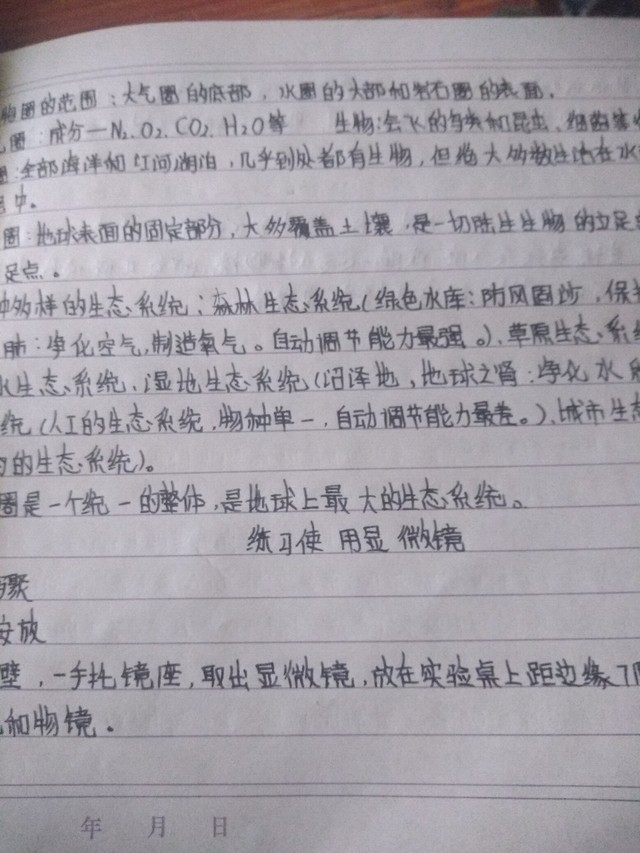 圈的范围：大气圈的底部，水圈的大部和岩石圈的表面．
圈：成分—N₂、O₂、CO₂、H₂O等　生物：会飞的鸟类和昆虫、细菌等
圈：全部海洋和江河湖泊，几乎到处都有生物，但绝大多数生活在水
中。
圈：地球表面的固定部分，大多覆盖土壤，是一切陆生生物的立足
足点。
多样的生态系统：森林生态系统（绿色水库：防风固沙，保
肺：净化空气，制造氧气。自动调节能力最强。）、草原生态系
水生态系统、湿地生态系统（沼泽地，地球之肾：净化水
统（人工的生态系统，物种单一，自动调节能力最差。）、城市生态
的生态系统）。
圈是一个统一的整体，是地球上最大的生态系统。
练习使用显微镜
骤
安放
壁，一手托镜座，取出显微镜，放在实验桌上距边缘7
和物镜．
年　月　日